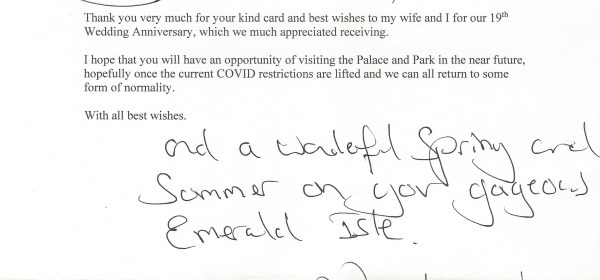 Thank you very much for your kind card and best wishes to my wife and I for our 19th
Wedding Anniversary, which we much appreciated receiving.
I hope that you will have an opportunity of visiting the Palace and Park in the near future,
hopefully once the current COVID restrictions are lifted and we can all return to some
form of normality.
With all best wishes.
and a wonderful Spring and
Summer on your gorgeous
Emerald Isle.